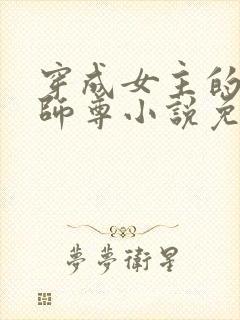 穿成女主的
師尊小說免
夢夢衛星